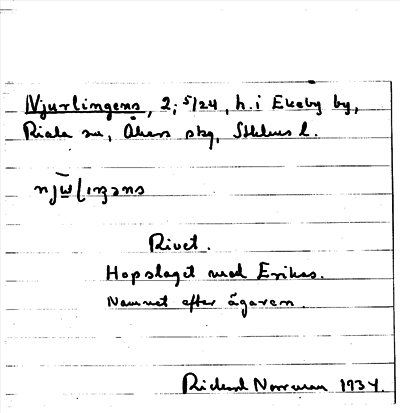 Njurlingens, 2; 5/24, h. i Ekeby by,
Riala sn, Åkers sky, Sthlms l.
njɯ̄ḷıŋəns
Rivet.
Hopslaget med Erikas.
Namnet efter ägaren.
Rickard Norrman 1934.